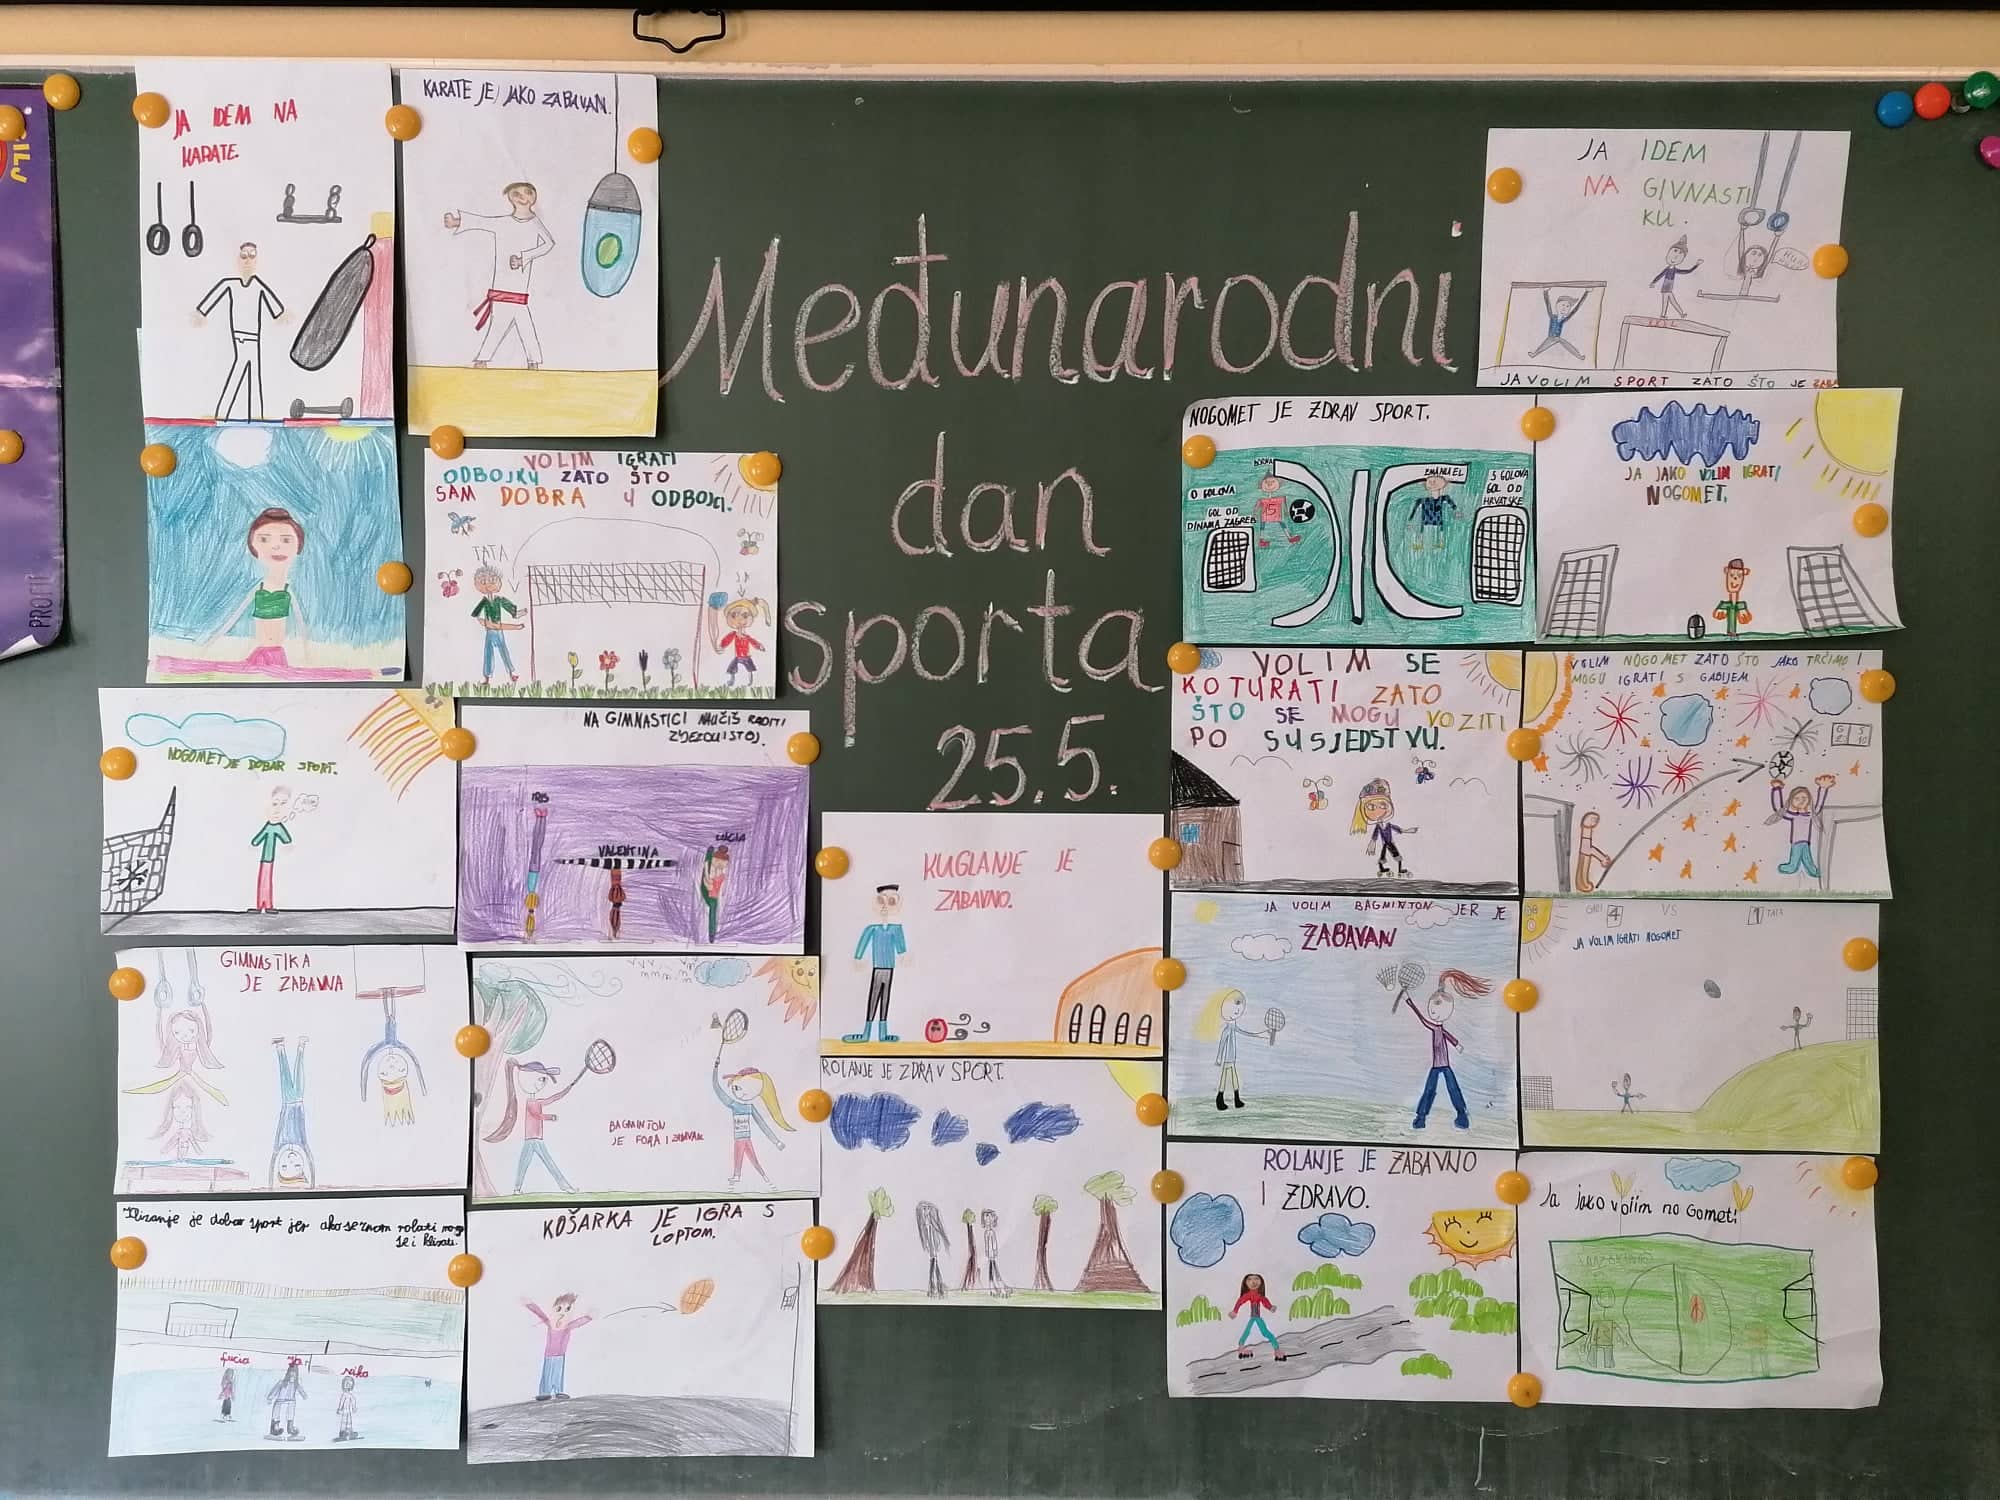 JA IDEM NA
KARATE.
KARATE JE JAKO ZABAVAN.
Međunarodni
dan
sporta
25.5.
JA IDEM
NA GIVNASTI
KU.
JA VOLIM SPORT ZATO ŠTO JE
VOLIM IGRATI
ODBOJKU ZATO ŠTO
SAM DOBRA U ODBOJCI.
TATA
JA
NOGOMET JE ZDRAV SPORT.
0 GOLOVA
GOL OD
DINAMA ZAGREB
EMANUEL
5 GOLOVA
GOL OD
HRVATSKE
15
JA JAKO VOLIM IGRATI
NOGOMET.
NOGOMET JE DOBAR SPORT.
NA GIMNASTICI NAUČIŠ RADITI
ZVJEZDU I STOJ.
IRIS
VALENTINA
LUCIA
VOLIM SE
KOTURATI ZATO
ŠTO SE MOGU VOZITI
PO SUSJEDSTVU.
VOLIM NOGOMET ZATO ŠTO JAKO TRČIMO I
MOGU IGRATI S GABIJEM
KUGLANJE JE
ZABAVNO.
JA VOLIM BAGMINTON JER JE
ZABAVAN
GABI 4 VS 1 TATA
JA VOLIM IGRATI NOGOMET
GIMNASTIKA
JE ZABAVNA
BAGMINTON
JE FORA I ZABAVAN
ROLANJE JE ZDRAV SPORT.
ROLANJE JE ZABAVNO
I ZDRAVO.
Ja jako volim no Gomet!
Klizanje je dobar sport jer ako se znam rolati mogu
se i klizati.
Lucia
Ja
Niko
KOŠARKA JE IGRA S
LOPTOM.
PROFIL